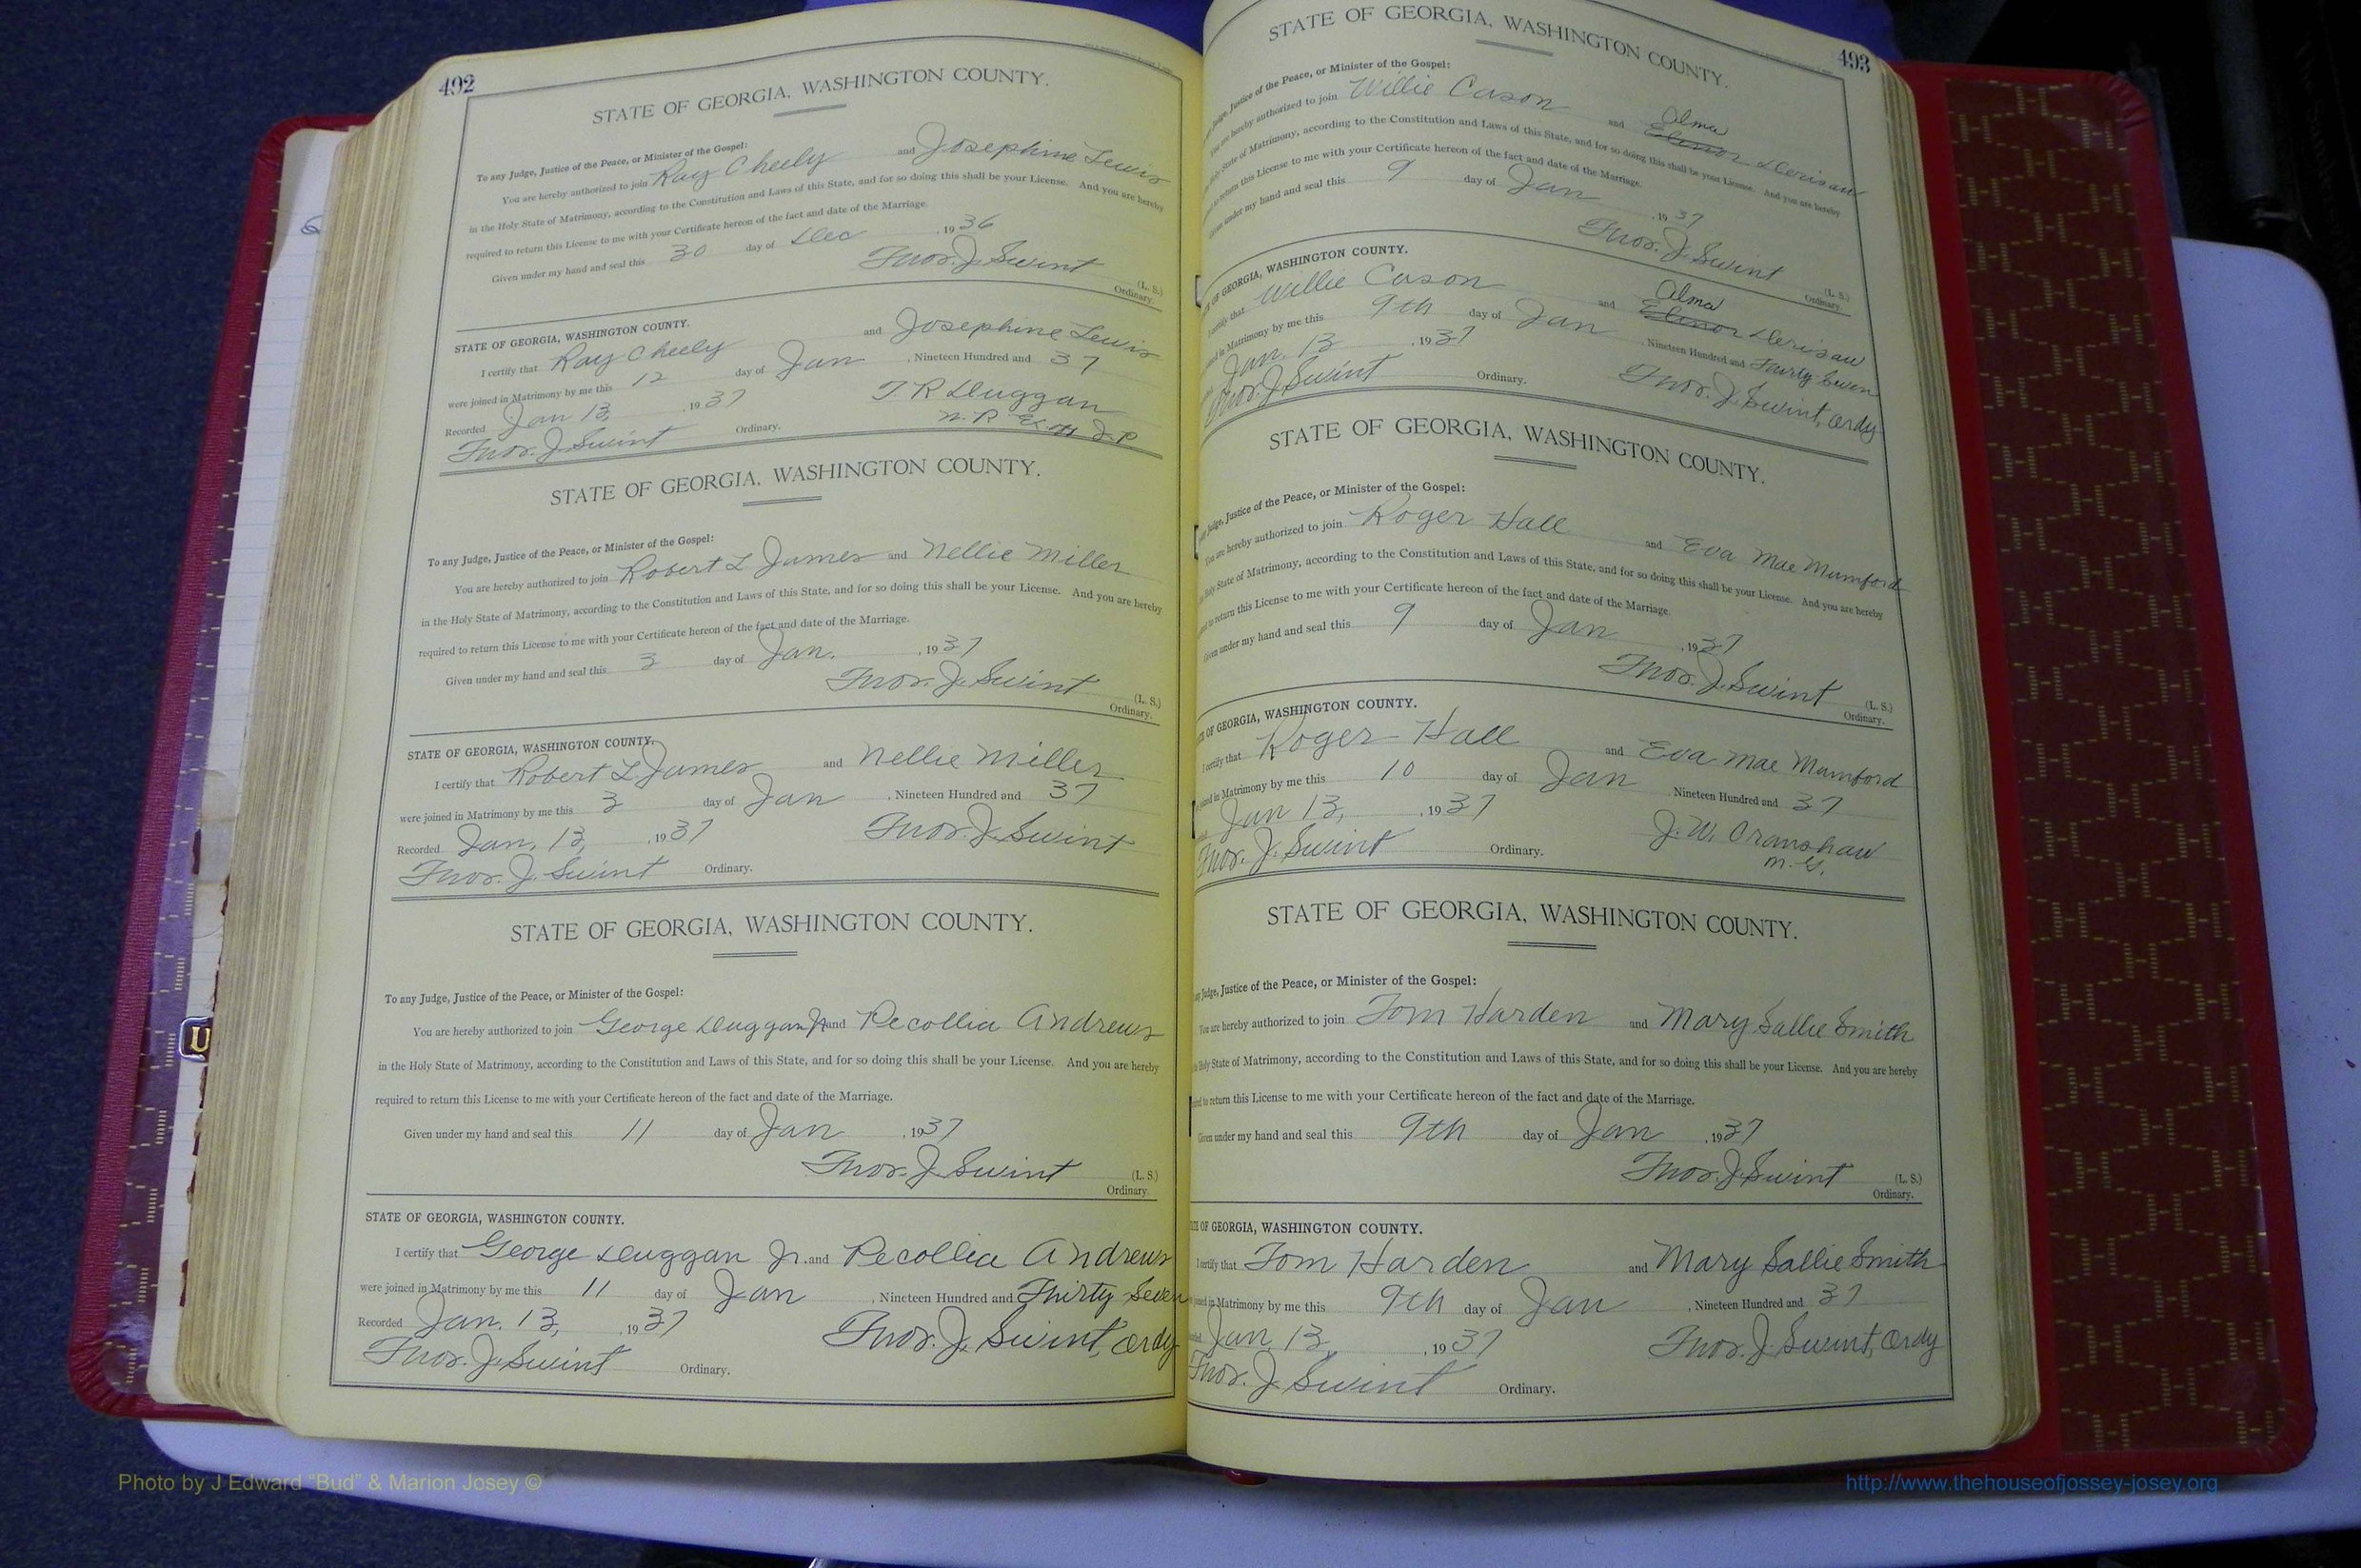 492
STATE OF GEORGIA, WASHINGTON COUNTY.
To any Judge, Justice of the Peace, or Minister of the Gospel:
You are hereby authorized to join Ray Cheely and Josephine Lewis
in the Holy State of Matrimony, according to the Constitution and Laws of this State, and for so doing this shall be your License. And you are hereby
required to return this License to me with your Certificate hereon of the fact and date of the Marriage.
Given under my hand and seal this 30 day of Dec , 1936
Thos. J. Swint (L. S.)
Ordinary.
STATE OF GEORGIA, WASHINGTON COUNTY.
I certify that Ray Cheely and Josephine Lewis
were joined in Matrimony by me this 12 day of Jan , Nineteen Hundred and 37
Recorded Jan 13, , 1937 T. R Duggan
Thos. J. Swint Ordinary. N. P. Ex Off J. P.
STATE OF GEORGIA, WASHINGTON COUNTY.
To any Judge, Justice of the Peace, or Minister of the Gospel:
You are hereby authorized to join Robert L James and Nellie Miller
in the Holy State of Matrimony, according to the Constitution and Laws of this State, and for so doing this shall be your License. And you are hereby
required to return this License to me with your Certificate hereon of the fact and date of the Marriage.
Given under my hand and seal this 3 day of Jan. , 1937
Thos. J. Swint (L. S.)
Ordinary.
STATE OF GEORGIA, WASHINGTON COUNTY.
I certify that Robert L James and Nellie Miller
were joined in Matrimony by me this 3 day of Jan , Nineteen Hundred and 37
Recorded Jan. 13, , 1937 Thos. J. Swint
Thos. J. Swint Ordinary.
STATE OF GEORGIA, WASHINGTON COUNTY.
To any Judge, Justice of the Peace, or Minister of the Gospel:
You are hereby authorized to join George Duggan Jr and Pecollia Andrews
in the Holy State of Matrimony, according to the Constitution and Laws of this State, and for so doing this shall be your License. And you are hereby
required to return this License to me with your Certificate hereon of the fact and date of the Marriage.
Given under my hand and seal this 11 day of Jan , 1937
Thos. J. Swint (L. S.)
Ordinary.
STATE OF GEORGIA, WASHINGTON COUNTY.
I certify that George Duggan Jr. and Pecollia Andrews
were joined in Matrimony by me this 11 day of Jan , Nineteen Hundred and Thirty Seven
Recorded Jan. 13, , 1937 Thos. J. Swint, Ordy
Thos. J. Swint Ordinary.
493
STATE OF GEORGIA, WASHINGTON COUNTY.
any Judge, Justice of the Peace, or Minister of the Gospel:
You are hereby authorized to join Willie Cason and Alma Elinor Derisaw
Holy State of Matrimony, according to the Constitution and Laws of this State, and for so doing this shall be your License. And you are hereby
to return this License to me with your Certificate hereon of the fact and date of the Marriage.
Given under my hand and seal this 9 day of Jan , 1937
Thos. J. Swint (L. S.)
Ordinary.
OF GEORGIA, WASHINGTON COUNTY.
I certify that Willie Cason and Alma Elinor Derisaw
joined in Matrimony by me this 9th day of Jan , Nineteen Hundred and Thirty Seven
Jan. 13 , 1937 Thos. J. Swint, Ordy
Thos. J. Swint Ordinary.
STATE OF GEORGIA, WASHINGTON COUNTY.
any Judge, Justice of the Peace, or Minister of the Gospel:
You are hereby authorized to join Roger Hall and Eva Mae Mumford
Holy State of Matrimony, according to the Constitution and Laws of this State, and for so doing this shall be your License. And you are hereby
to return this License to me with your Certificate hereon of the fact and date of the Marriage.
Given under my hand and seal this 9 day of Jan , 1937
Thos. J. Swint (L. S.)
Ordinary.
OF GEORGIA, WASHINGTON COUNTY.
I certify that Roger Hall and Eva Mae Mumford
joined in Matrimony by me this 10 day of Jan , Nineteen Hundred and 37
Jan 13, , 1937 J. W. Cranshaw
Thos. J. Swint Ordinary. M. G.
STATE OF GEORGIA, WASHINGTON COUNTY.
any Judge, Justice of the Peace, or Minister of the Gospel:
You are hereby authorized to join Tom Harden and Mary Sallie Smith
Holy State of Matrimony, according to the Constitution and Laws of this State, and for so doing this shall be your License. And you are hereby
to return this License to me with your Certificate hereon of the fact and date of the Marriage.
Given under my hand and seal this 9th day of Jan , 1937
Thos. J. Swint (L. S.)
Ordinary.
OF GEORGIA, WASHINGTON COUNTY.
I certify that Tom Harden and Mary Sallie Smith
joined in Matrimony by me this 9th day of Jan , Nineteen Hundred and 37
Jan. 13, , 1937 Thos. J. Swint, Ordy
Thos. J. Swint Ordinary.
Photo by J Edward "Bud" & Marion Josey ©
http://www.thehouseofjossey-josey.org